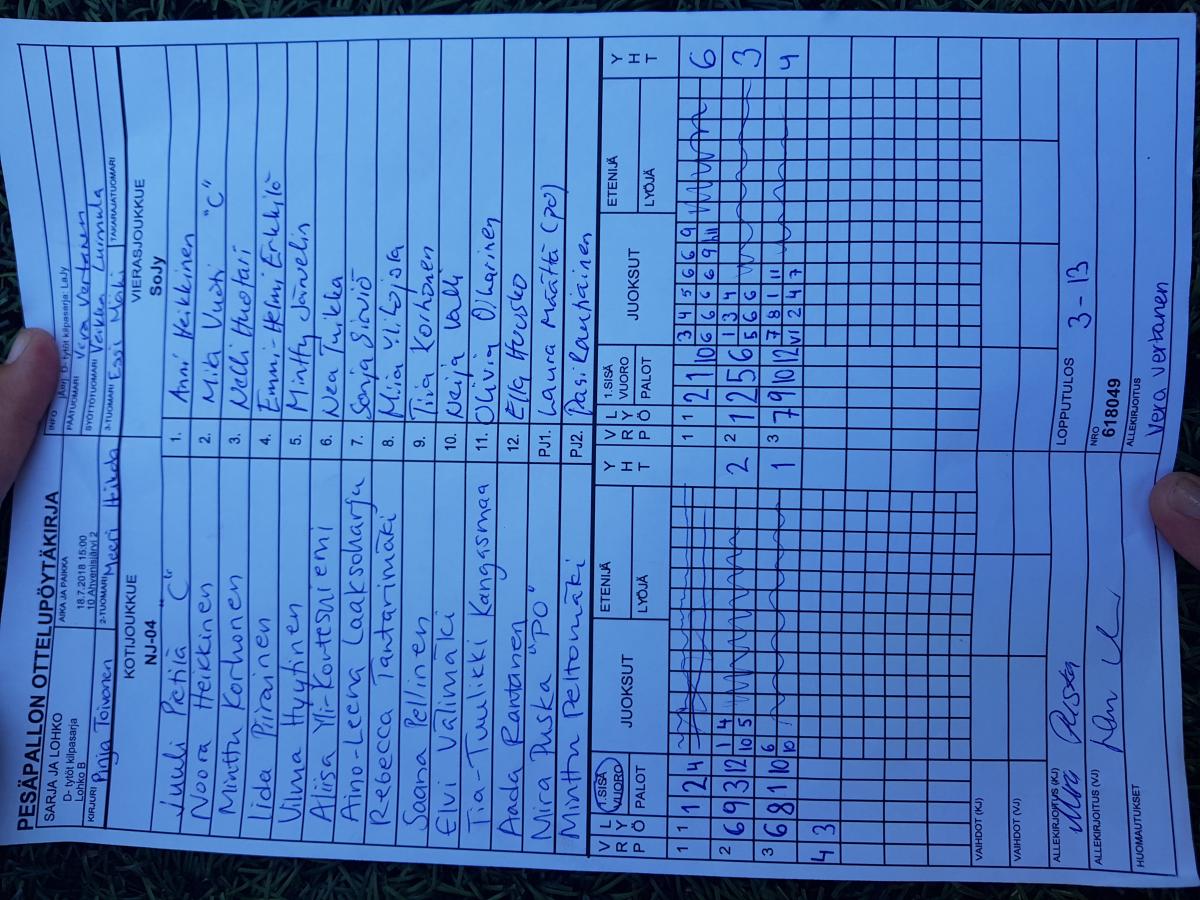 PESÄPALLON OTTELUPÖYTÄKIRJA
SARJA JA LOHKO
D- tytöt kilpasarja
Lohko B
AIKA JA PAIKKA
18.7.2018 15:00
10 Ahvenisjärvi 2
INFO
D- tytöt kilpasarja: LaJy
PÄÄTUOMARI Vera Vertanen
SYÖTTÖTUOMARI
KIRJURI Pinja Toivonen
2-TUOMARI Meeri
3-TUOMARI Essi Mäki
TAKARAJATUOMARI
KOTIJOUKKUE
NJ-04
VIERASJOUKKUE
SoJy
Juuli Pietilä "C" 1. Anni Heikkinen
Noora Heikkinen 2. Mila Vuoti "C"
Minttu Korhonen 3. Nelli Huotari
Iida Piirainen 4. Emmi-Helmi Erkkilä
Vilma Hyytinen 5. Minttu Jänvelin
Aliisa Yli-Kortesniemi 6. Nea Juikka
Aino-Leena Laaksoharju 7. Sonja Sirviö
Rebecca Tantarimäki 8. Miia
Saana Pellinen 9. Tiia Korhonen
Elvi Välimäki 10. Neija
Tia-Tuulikki Kangasmaa 11. Olivia Oikarinen
Aada Rantanen 12. Ella Heusko
Mira Puska "PO" PJ1. Laura Määttä (po)
Minttu Peltomäki PJ2. Pasi Rautiainen
V R P L Y Ö 1.SISÄ VUORO PALOT JUOKSUT ETENIJÄ LYÖJÄ Y H T
V R P L Y Ö 1.SISÄ VUORO PALOT JUOKSUT ETENIJÄ LYÖJÄ Y H T
1 1 1 2 4
1 1 2 1 10 3 4 5 6 6 9 6
6 6 6 6 9
2 6 9 3 12 1 4 2
10 5
2 1 2 5 6 1 3 4 3
5 6 6
3 6 8 1 10 6 1
10
3 7 9 10 12 7 8 1 11 4
2 4 7
4 3
VAIHDOT (KJ)
VAIHDOT (VJ)
ALLEKIRJOITUS (KJ) Mira Puska
LOPPUTULOS 3 - 13
ALLEKIRJOITUS (VJ)
NRO
618049
HUOMAUTUKSET
ALLEKIRJOITUS
Vera Vertanen